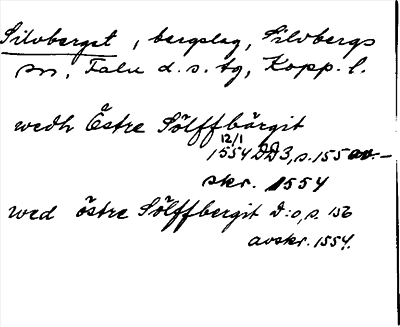 Silvberget, bergslag, Silvbergs
sn, Falu d. s. tg, Kopp. l.
wedh Östre Sölffbärgit
12/1
1554 DD3, s. 155 av-
skr. 1554
wed östre Sölffbergit D:o, s. 156
avskr. 1554.